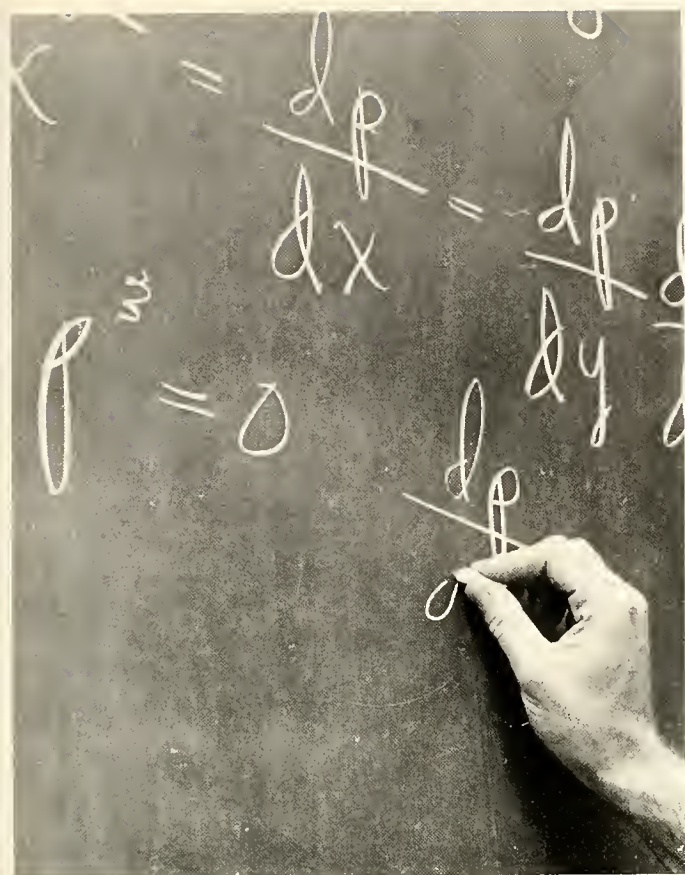 = dp/dx = dp/dy
p = 0
dp